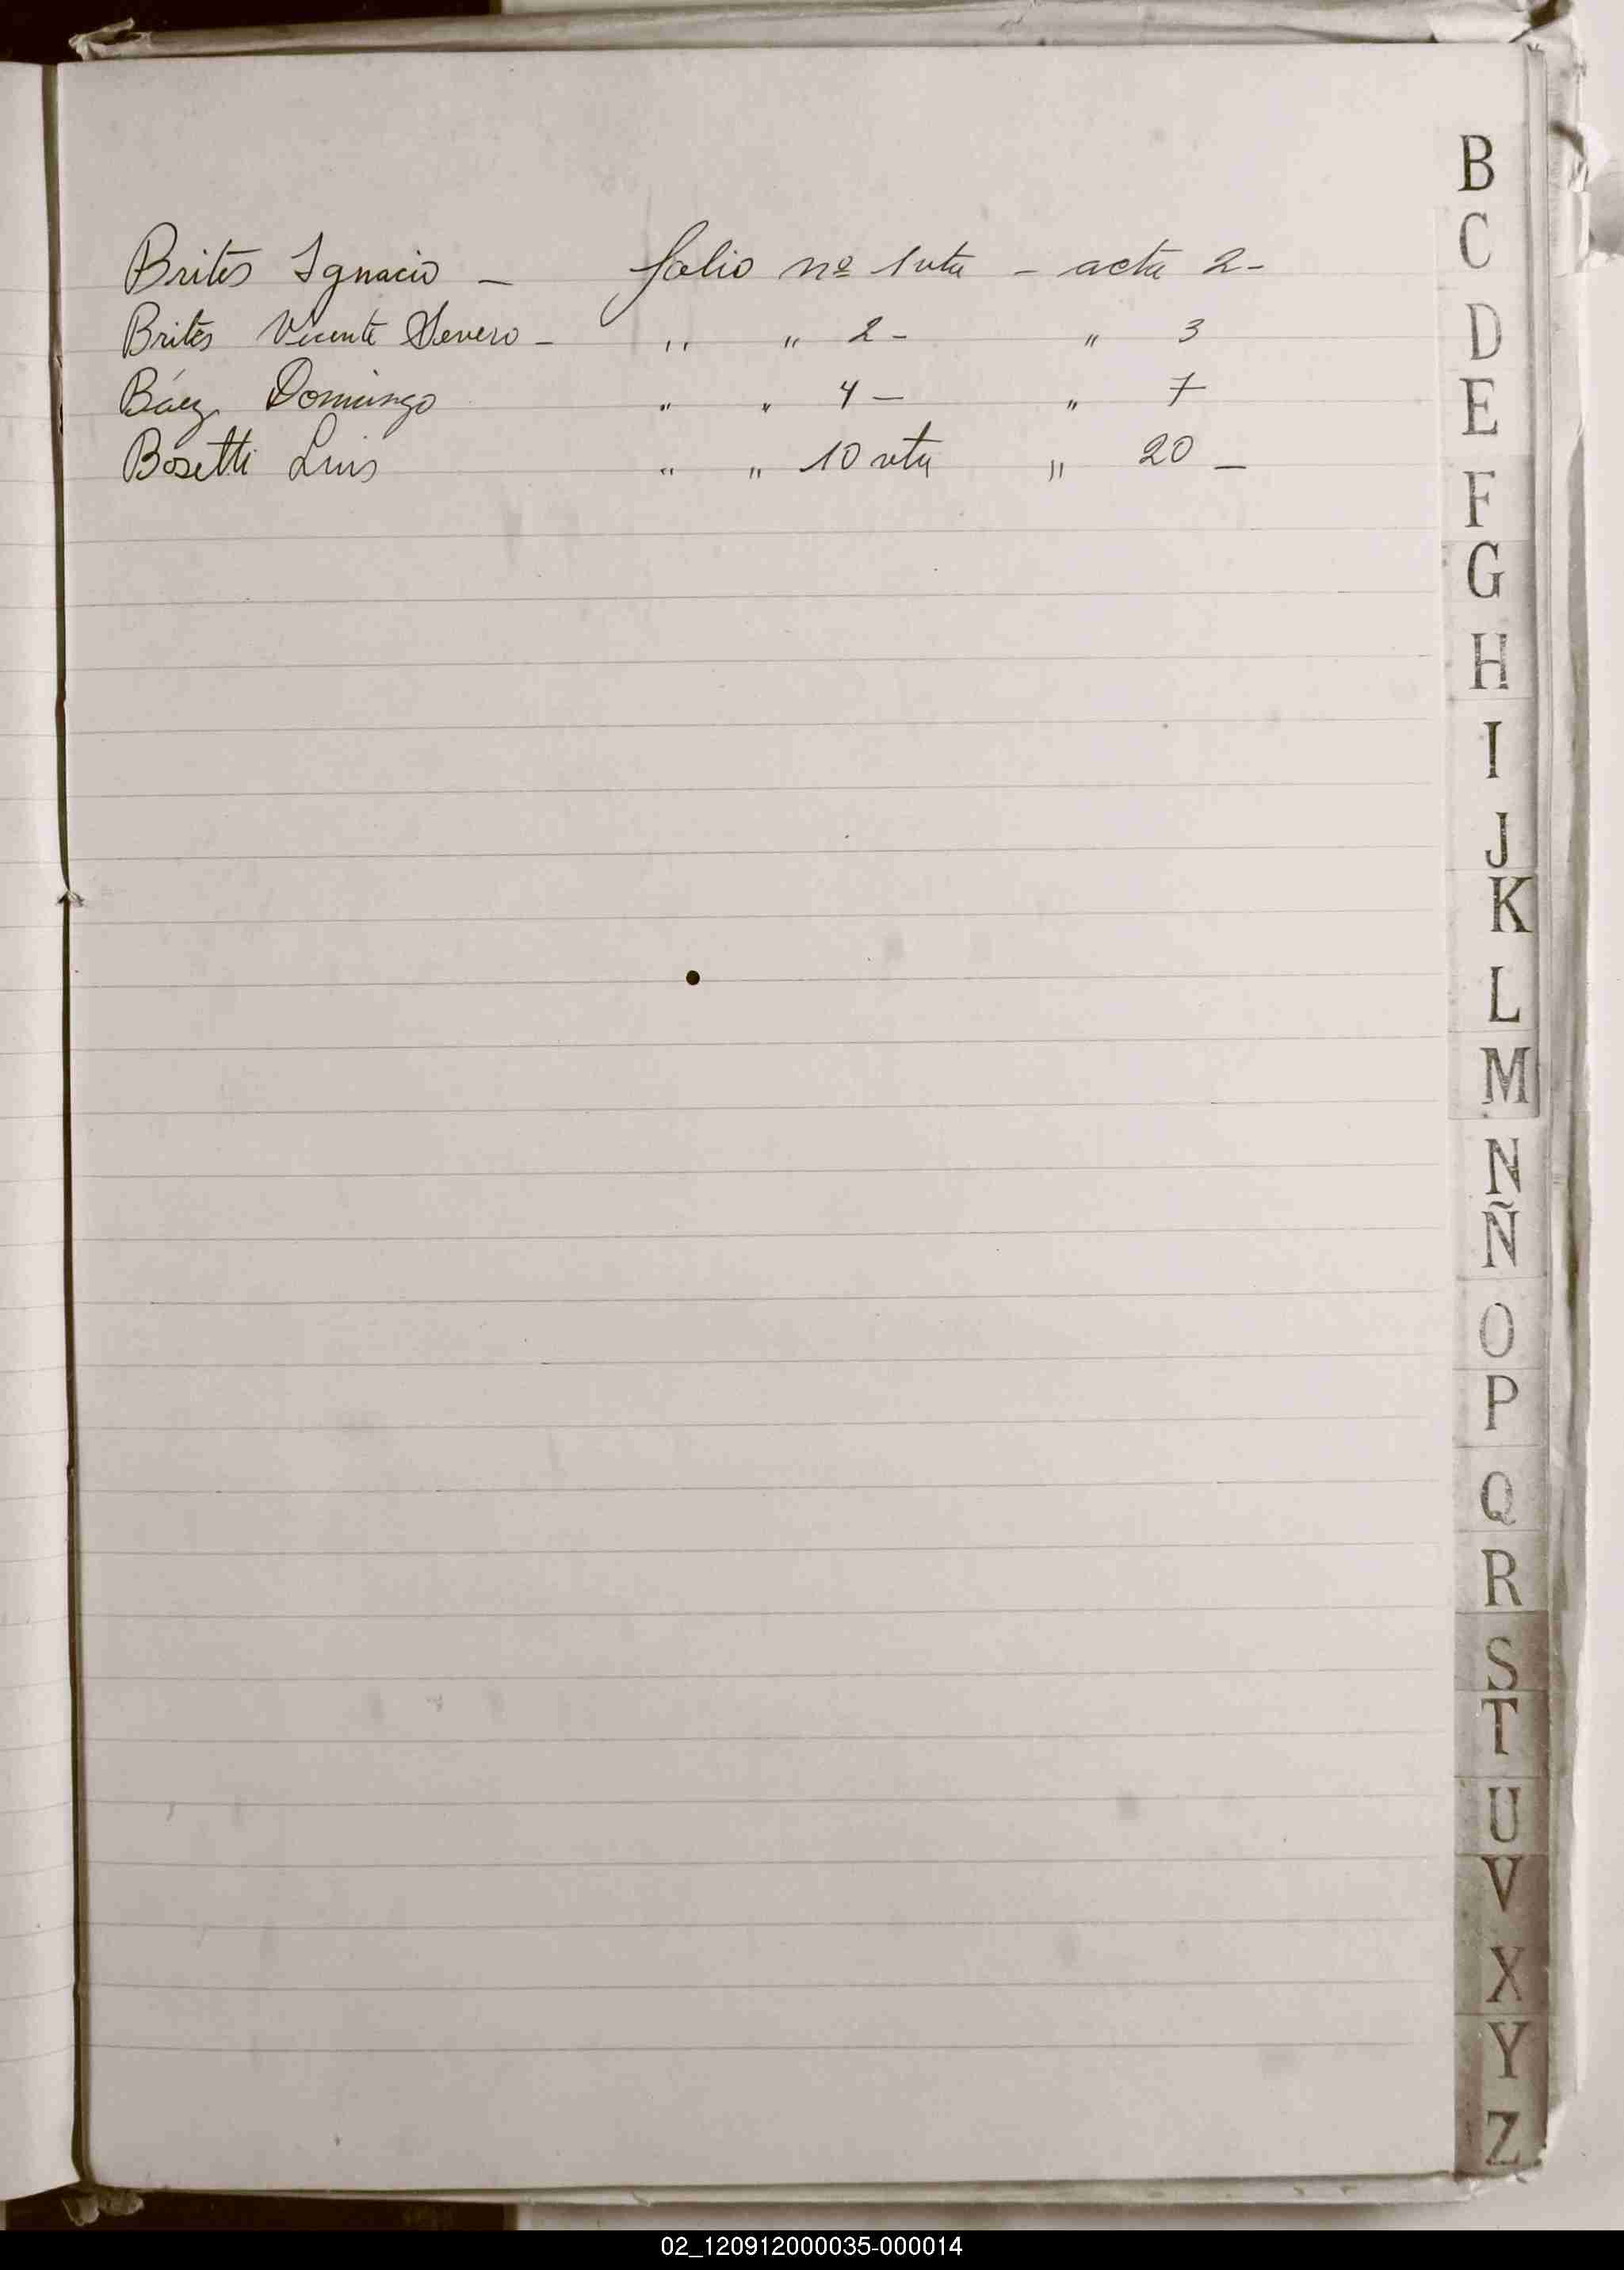 Brites Ignacio - folio nº 1 vta - acta 2 -
Brites Vicente Severo - " " 2 - " 3
Báez Domingo " " 4 - " 7
Bosetti Luis " " 10 vta " 20 -
B
C
D
E
F
G
H
I
J
K
L
M
N
Ñ
O
P
Q
R
S
T
U
V
X
Y
Z
02_120912000035-000014